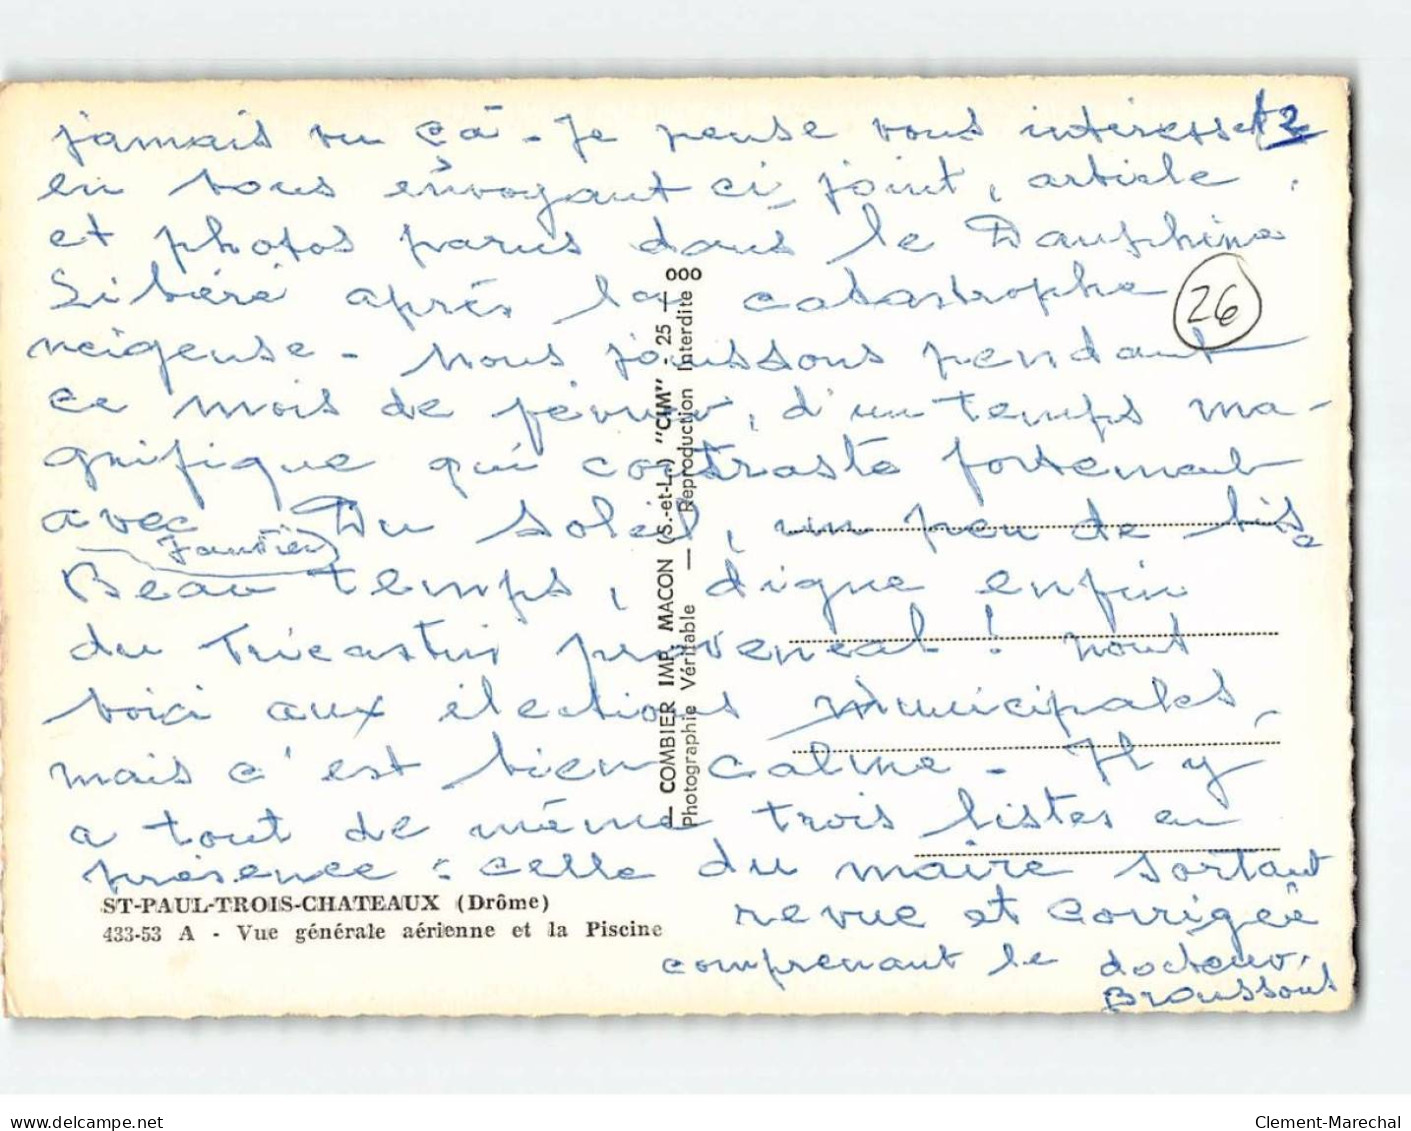 jamais vu ça - Je pense vous intéresser 2
en vous envoyant ci-joint, article,
et photos parus dans le Dauphiné
Libéré après la catastrophe
neigeuse - Nous jouissons pendant
ce mois de février, d'un temps ma-
gnifique qui contraste fortement
avec Janvier Du soleil, un peu de bise
Beau temps, digne enfin
du Tricastin provencal ! nous
voici aux élections municipales,
mais c'est bien calme - Il y
a tout de même trois listes en
présence : celle du maire sortant
revue et corrigée
comprenant le docteur
Broussous
26
ST-PAUL-TROIS-CHATEAUX (Drôme)
433-53 A - Vue générale aérienne et la Piscine
— COMBIER IMP. MACON (S.-et-L.) "CIM" - 25 — 000
Photographie Véritable — Reproduction Interdite
www.delcampe.net
Clement-Marechal